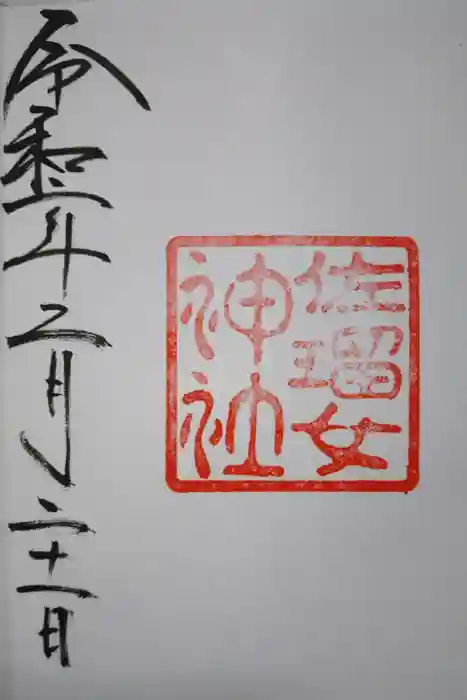 佐瑠女
神社
令和二年二月二十一日